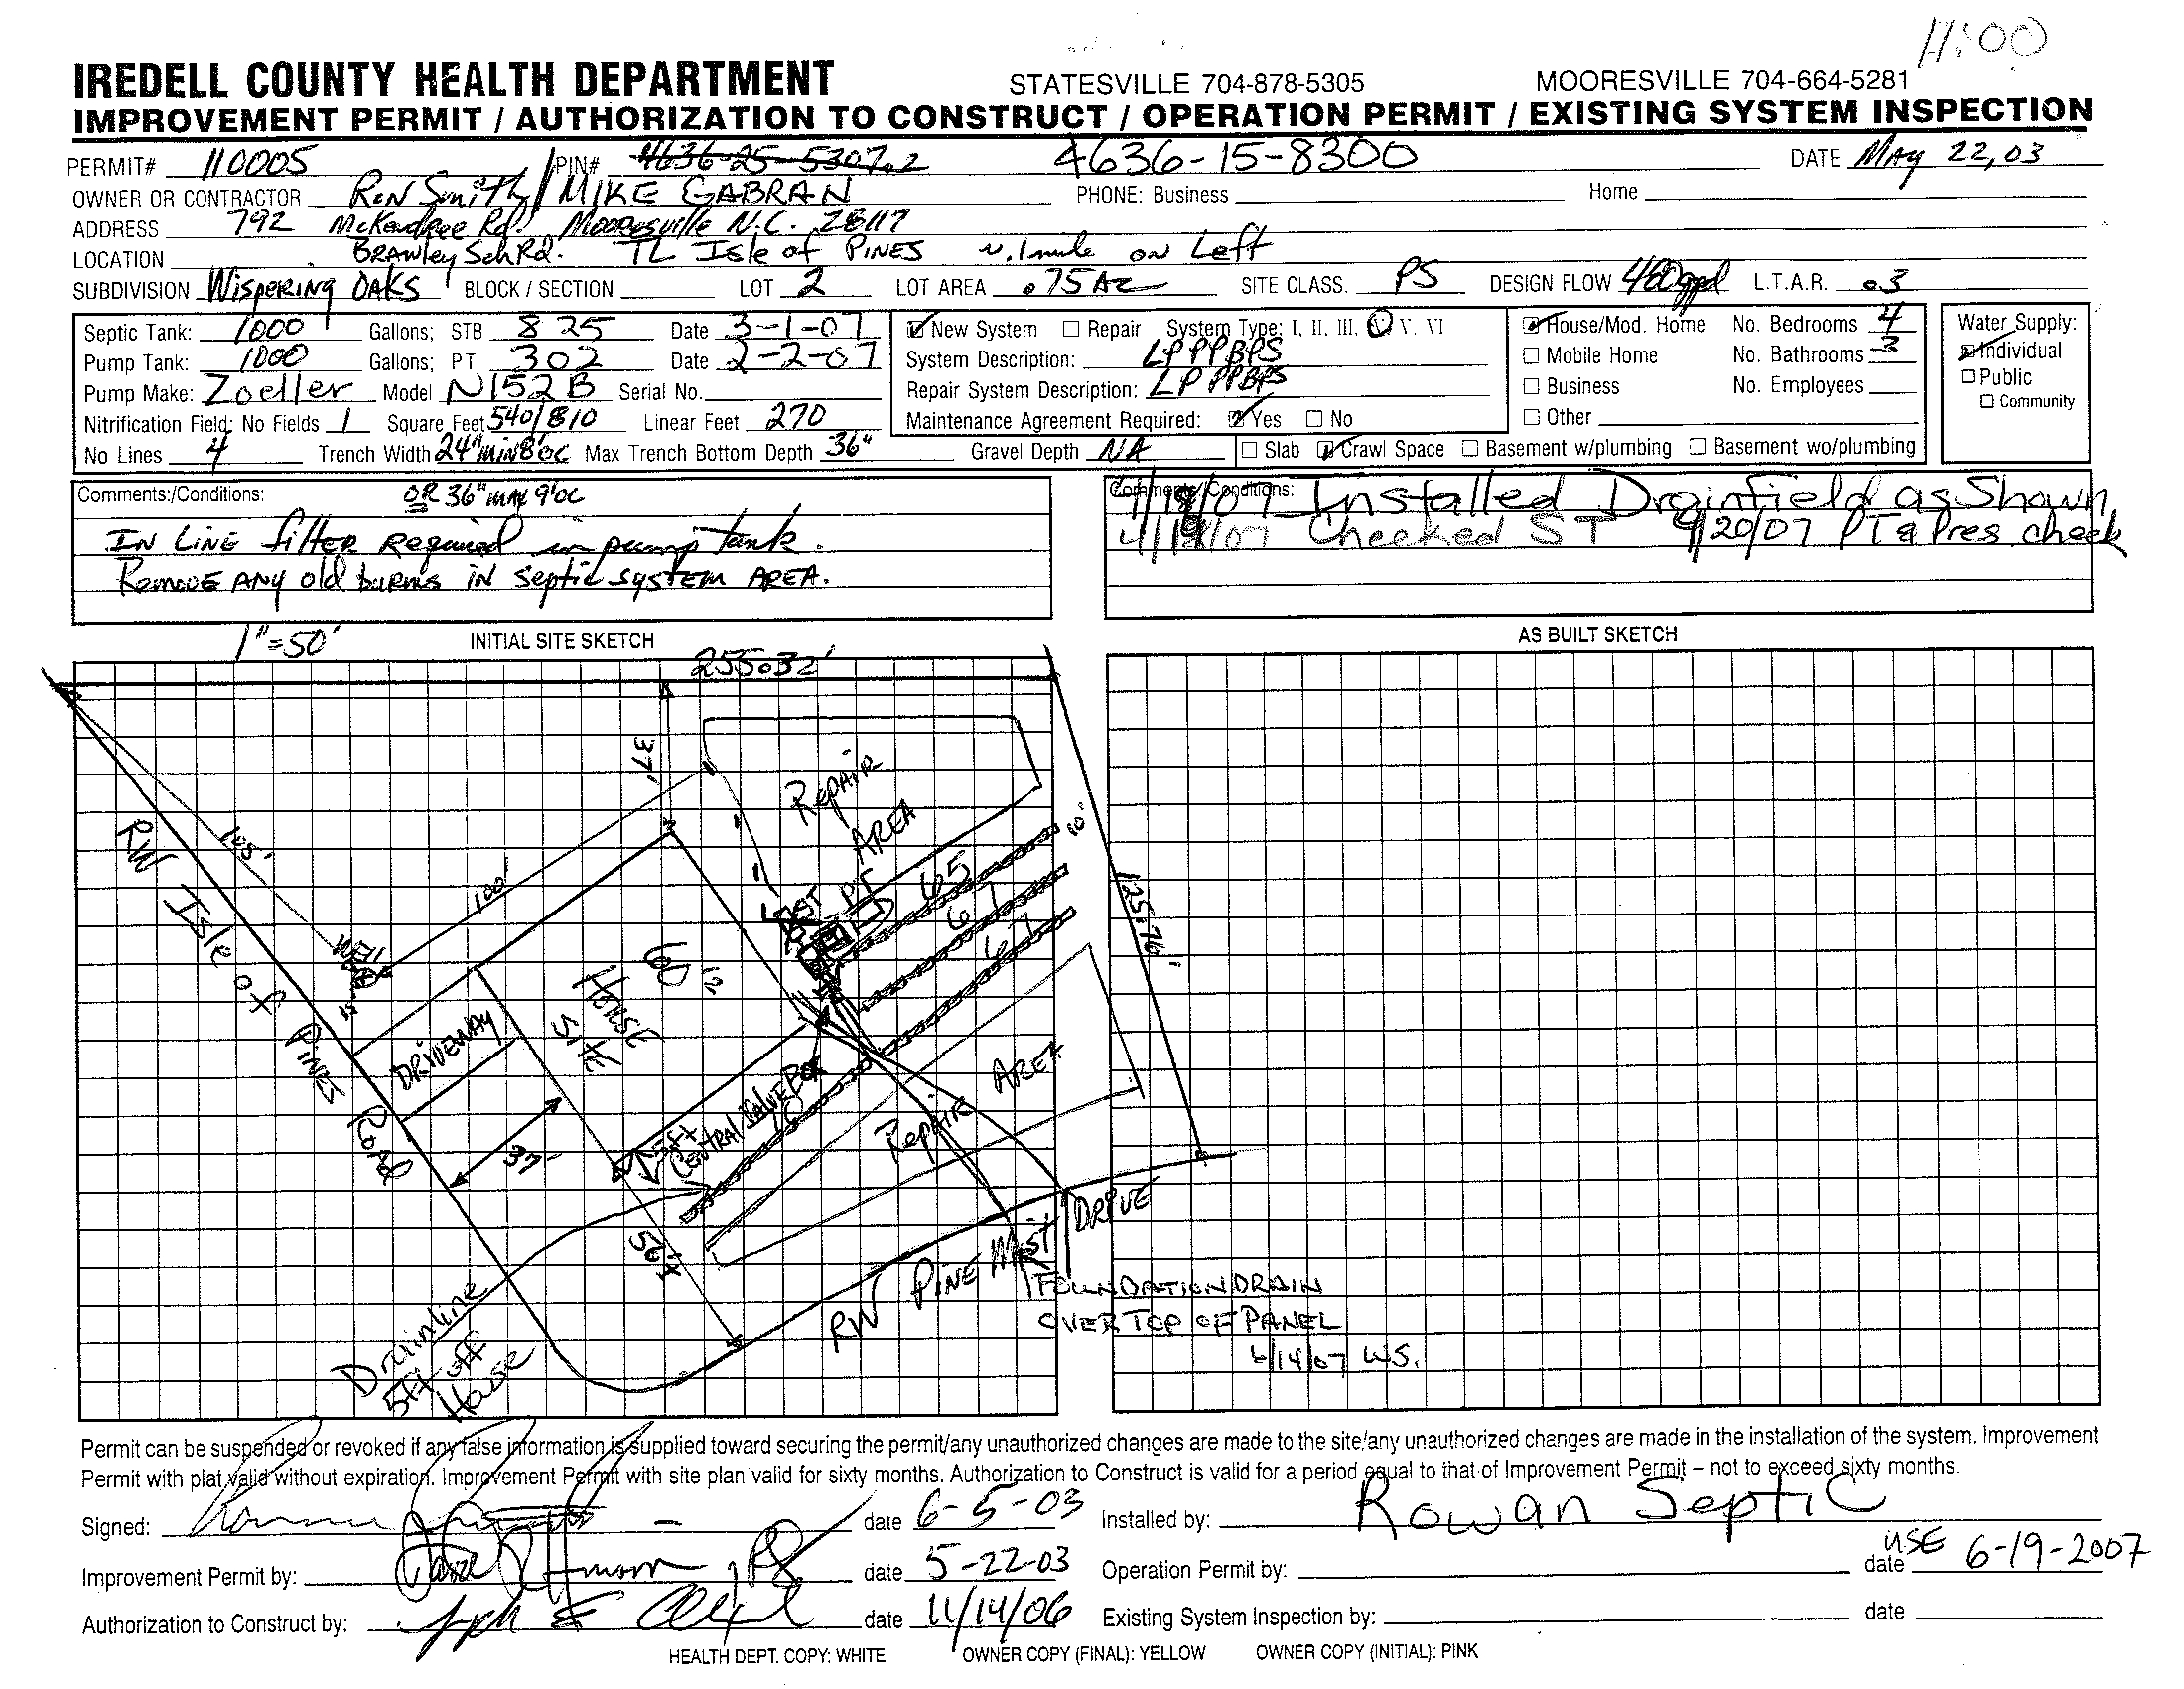 11:00
IREDELL COUNTY HEALTH DEPARTMENT STATESVILLE 704-878-5305 MOORESVILLE 704-664-5281
IMPROVEMENT PERMIT / AUTHORIZATION TO CONSTRUCT / OPERATION PERMIT / EXISTING SYSTEM INSPECTION
PERMIT# 110005 PIN# 4636-25-5307.2 4636-15-8300 DATE MAY 22,03
OWNER OR CONTRACTOR Ron Smith / MIKE GABRAN PHONE: Business Home
ADDRESS 792 McKendree Rd. Mooresville N.C. 28117
LOCATION BRAWley Sch Rd. TL Isle of PINES ~.1mile on Left
SUBDIVISION WisperiNg OAKS BLOCK / SECTION LOT 2 LOT AREA .75 Ac SITE CLASS. PS DESIGN FLOW 480gpd L.T.A.R. .3
Septic Tank: 1000 Gallons; STB 825 Date 3-1-07
Pump Tank: 1000 Gallons; PT 302 Date 2-2-07
Pump Make: Zoeller Model N152B Serial No.
Nitrification Field: No Fields 1 Square Feet 540/810 Linear Feet 270
No Lines 4 Trench Width 24" min 8'oc Max Trench Bottom Depth 36" Gravel Depth NA
New System Repair System Type: I, II, III, IV, V, VI
System Description: LPPPBPS
Repair System Description: LPPPBPS
Maintenance Agreement Required: Yes No
House/Mod. Home No. Bedrooms 4
Mobile Home No. Bathrooms 3
Business No. Employees
Other
Slab Crawl Space Basement w/plumbing Basement wo/plumbing
Water Supply:
Individual
Public
Community
Comments:/Conditions: OR 36" max 9'oc
IN LINE filter Required in pump tank.
Remove ANY old burms iN septic system AREA.
Comments/Conditions: 4/19/07 Installed Drainfield as Shown
4/19/07 Checked ST 4/20/07 PT & Pres check
1"=50' INITIAL SITE SKETCH
AS BUILT SKETCH
255.32'
37'
Repair
AREA
10"
105'
100'
WELL
15'
RW Isle of PINES ROAD
DRIVEWAY
HOUSE
SITE
60'
PT
65
67
67
125.76'
5ft
CENTRAL VALVE BOX
70
37'
Repair AREA
56'
RW PINE MIST DRIVE
FOUNDATION DRAIN
OVER TOP OF PANEL
6/14/07 W.S.
Drainline
5ft off
House
Permit can be suspended or revoked if any false information is supplied toward securing the permit/any unauthorized changes are made to the site/any unauthorized changes are made in the installation of the system. Improvement
Permit with plat valid without expiration. Improvement Permit with site plan valid for sixty months. Authorization to Construct is valid for a period equal to that of Improvement Permit – not to exceed sixty months.
Signed: date 6-5-03 Installed by: Rowan Septic
Improvement Permit by: date 5-22-03 Operation Permit by: date USE 6-19-2007
Authorization to Construct by: date 11/14/06 Existing System Inspection by: date
HEALTH DEPT. COPY: WHITE OWNER COPY (FINAL): YELLOW OWNER COPY (INITIAL): PINK